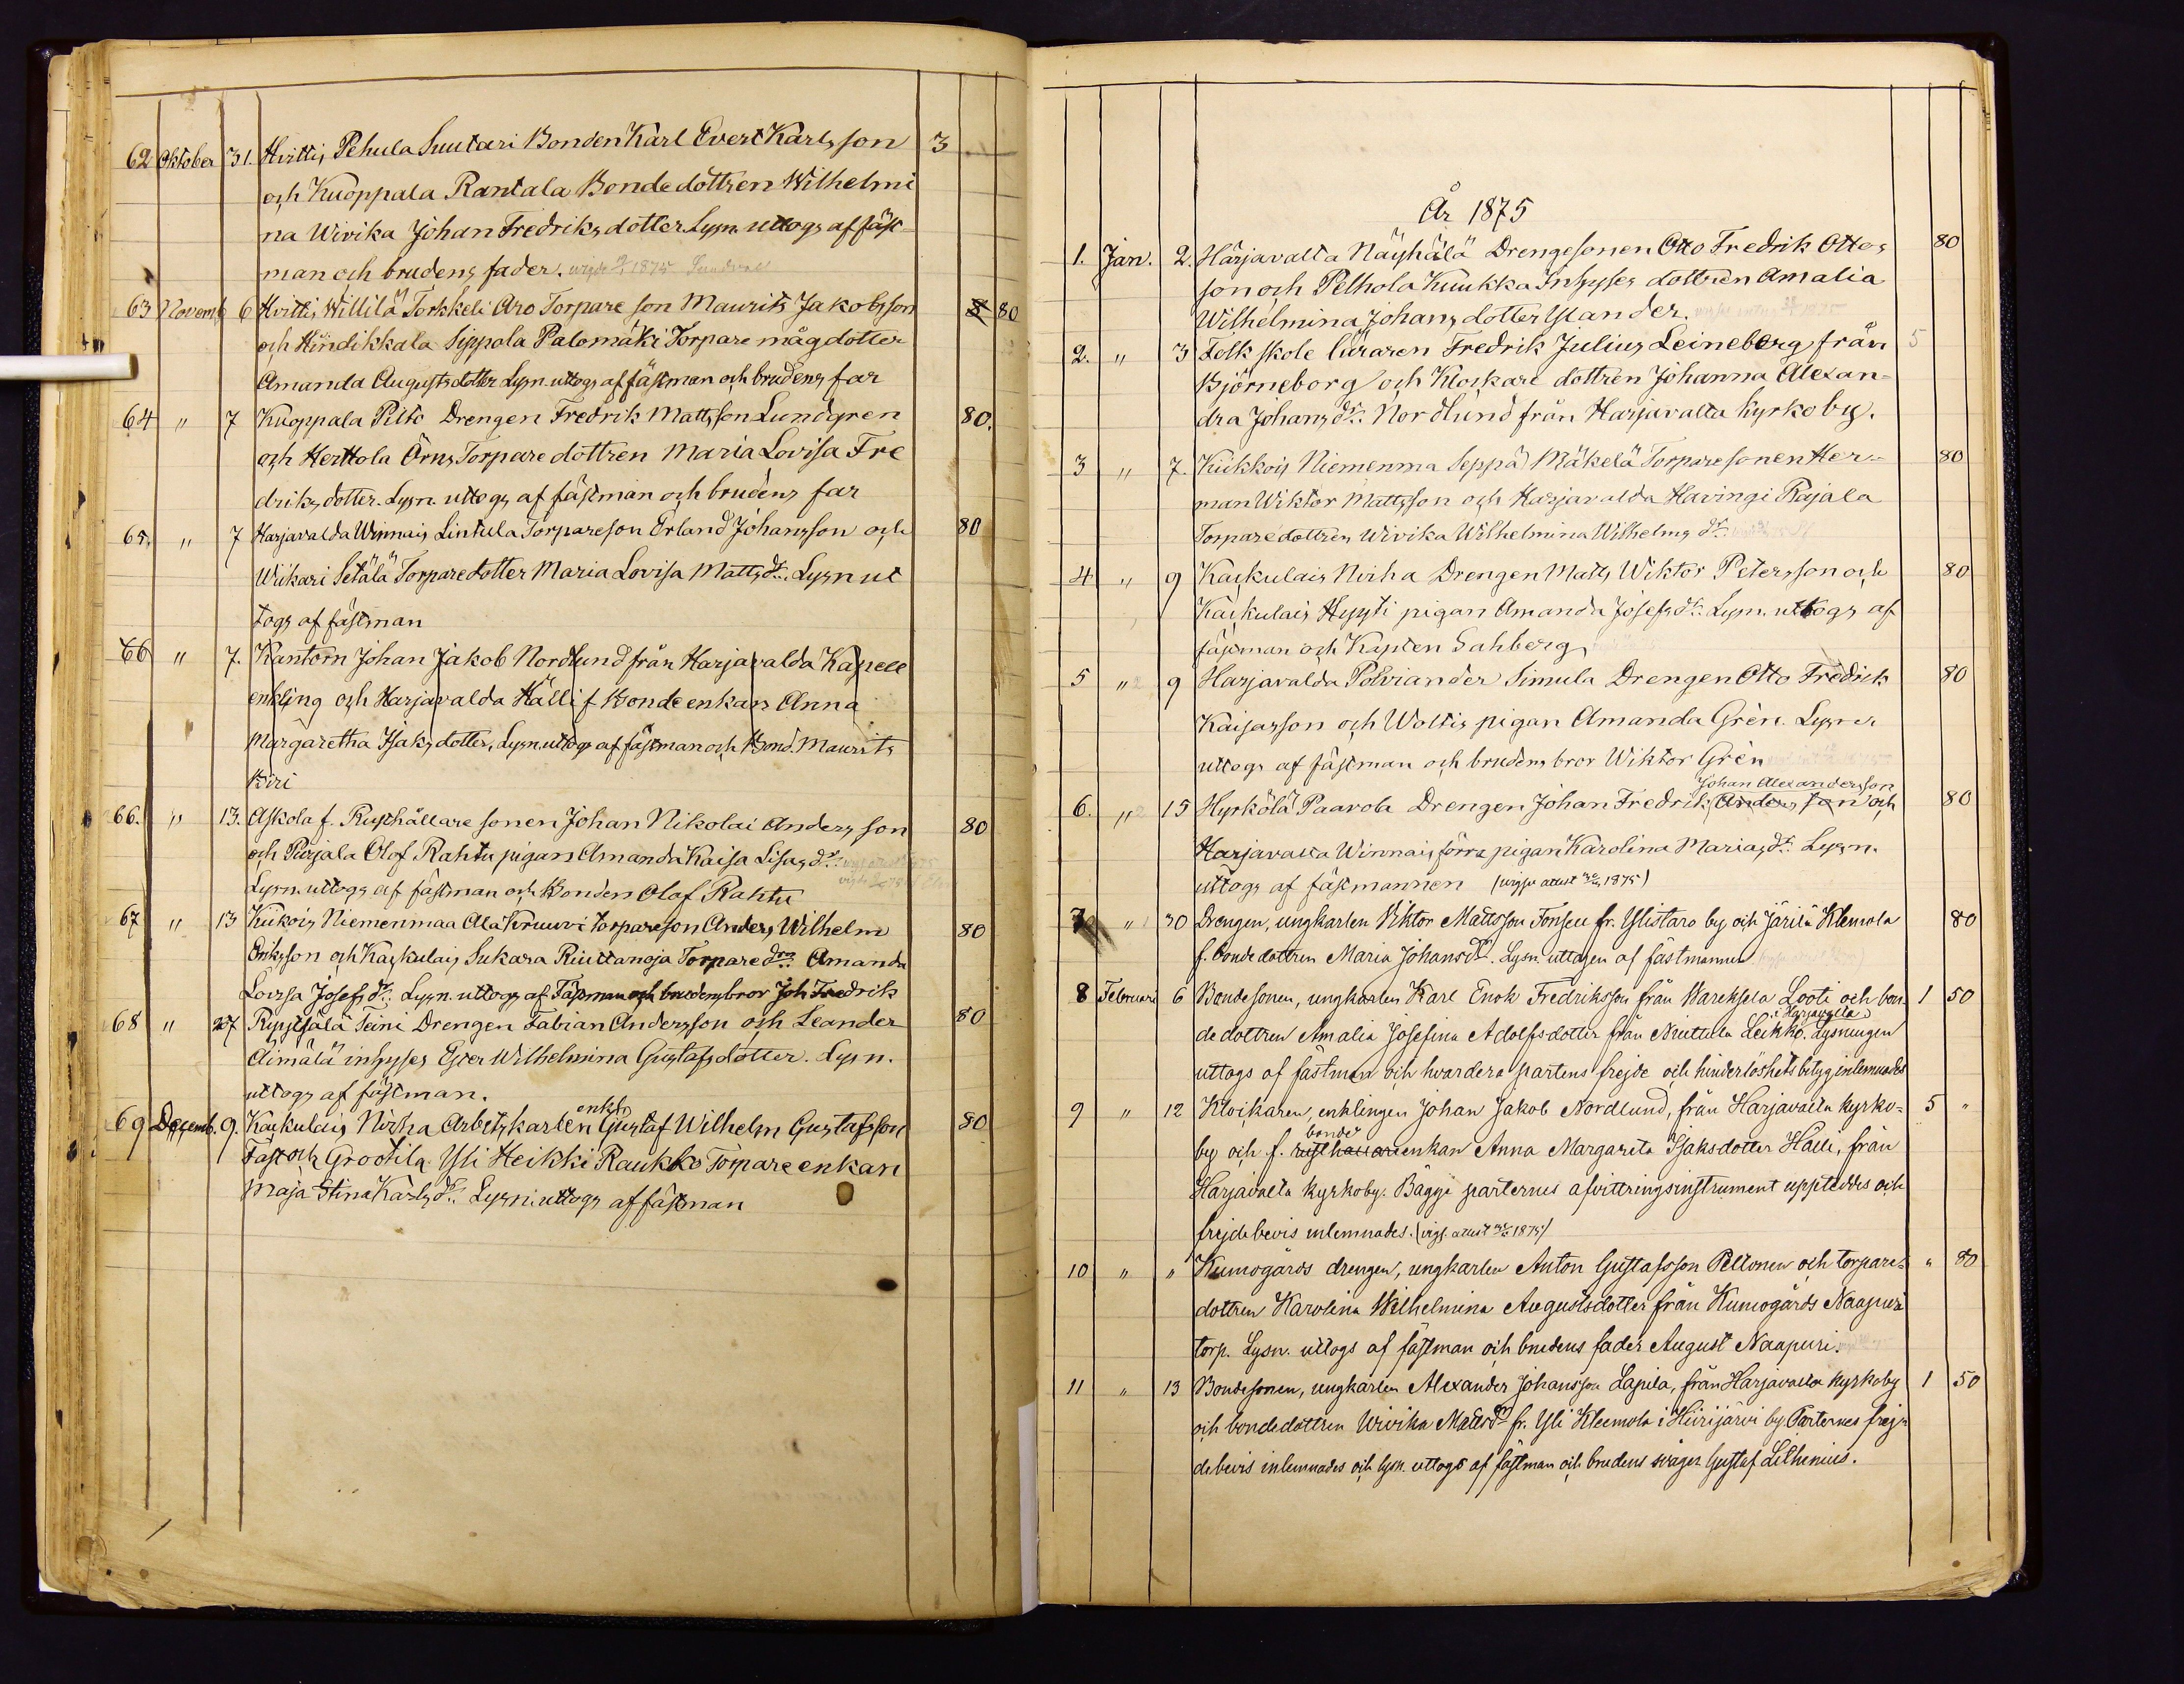 62 Oktober 31. Hvittis Pehula Suutari Bonden Karl Evert Karlsson 3
och Kuoppala Rantala Bondedottren Wilhelmi
na Wivika Johan Fredriksdotter Lysn. uttogs af fäst
man och brudens fader. 1875
63 Novemb 6 Hvittis Willilä Torkkeli Aro Torpareson Maurits Jakobsson 80
och Hindikkala Sippola Palomäki Torpare mågdotter
Amanda Augustsdotter Lysn. uttogs af fästman och brudens far
64 " 7 Kuoppala Pilto Drengen Fredrik Mattsson Lundgren 80.
och Herttola Örns Torparedottren Maria Lovisa Fre
driksdotter. Lysn. uttogs af fästman och brudens far
65. " 7 Harjavalda Winnais Lintula Torpareson Erland Johansson och 80
Wiikari Setälä Torparedotter Maria Lovisa Matts dr. Lysn ut
togs af fästman
66 " 7. Kantorn Johan Jakob Nordlund från Harjavalda Kapell
enkling och Harjavalda Hälli f Bondeenkan Anna
Margaretha Isaksdotter, Lysn. uttogs af fästman och Bond. Maurits
Kiri
66. " 13. Askola f. Rusthållaresonen Johan Nikolai Andersson 80
och Purjala Olof Rahtu pigan Amanda Kaisa Lisas dr.
Lysn. uttogs af fästman och Bonden Olof Rahtu
67 " 13 Kiukois Niemenmaa Ala Kruuvi torpareson Anders Wilhelm 80
Eriksson och Kaskulais Sukara Riuttanoja Torparedrn Amanda
Lovisa Josefs dr. Lysn. uttogs af Fästman och brudens bror Joh Fredrik
68 " 27 Ryssjälä Teini Drengen Fabian Andersson och Leander 80
Äimälä inhyses Ester Wilhelmina Gustafsdotter. Lysn.
uttogs af fästman.
enkl.
69 Decemb. 9. Kaskulais Nirha Arbetskarlen Gustaf Wilhelm Gustafsson 80
Fast och Grootila Yli Heikki Raukko Torpareenkan
Maja Stina Karls dr. Lysn. uttogs af fästman
År 1875
1. Jan. 2. Harjavalta Näyhälä Drengesonen Otto Fredrik Ottos 80
son och Pelhola Kuukka Inhyses dottren Amalia
Wilhelmina Johansdotter Ylander.
2. " 3 Folkskoleläraren Fredrik Julius Leineberg från 5
Björneborg och Klockaredottren Johanna Alexan-
dra Johans dr. Nordlund från Harjavalta kyrkoby.
3 " 7. Kiukkois Niemenma Seppä Mäkelä Torparesonen Her- 80
man Wiktor Mattsson och Harjavalda Havingi Rajala
Torparedottren Wivika Wilhelmina Wilhelms dr.
4 " 9 Kaskulais Nirha Drengen Matts Wiktor Petersson och 80
Kaskulais Hyyti pigan Amanda Josefs dr. Lysn. uttogs af
fästman och Kapten Sahberg
5 " 9 Harjavalda Polviander Simula Drengen Otto Fredrik 80
Kaisasson och Woltis pigan Amanda Gren. Lysn
uttogs af fästman och brudens bror Wiktor Grén
Johan Alexandersson
6. " 15 Hyrkölä Paavola Drengen Johan Fredrik Andersson och 80
Harjavalta Winnais förra pigan Karolina Marias dr. Lysn.
uttogs af fästmannen (vigse attest 1875)
7 " 30 Drengen, ungkarlen Viktor Mattsson Tonsen fr. Ylistaro by och Järilä Klemola 80
f. bondedottren Maria Johans dr. Lysn. uttagen af fästmannen
8 Februari 6 Bondesonen, ungkarlen Karl Enok Fredriksson från Wareksela Looti och bon- 1 50
i Harjavalta
dedottren Amalia Josefina Adolfsdotter från Niuttula Leikko. Lysningen
uttogs af fästman och hvardera partens frejde och hinderlöshetsbetyg inlemnades
9 " 12 Klockaren, enklingen Johan Jakob Nordlund, från Harjavalta kyrko- 5 "
bonde
by och f. rusthållareenkan Anna Margareta Isaksdotter Hälli, från
Harjavalta kyrkoby. Bägge parternes afvittringsinstrument uppteddes och
frejdebevis inlemnades. (vigs. attest 1875)
10 " " Kumogårds drengen, ungkarlen Anton Gustafsson Peltonen och torpare- " 80
dottren Karolina Wilhelmina Augustsdotter från Kumogårds Naapuri
torp. Lysn. uttogs af fästman och brudens fader August Naapuri.
11 " 13 Bondesonen, ungkarlen Alexander Johansson Lapila, från Harjavalta kyrkoby 1 50
och bondedottren Wivika Matts dr fr. Yli Kleemola i Hiirijärvi by. Parternes frej-
debevis inlemnades och lysn. uttogs af fästman och brudens svåger Gustaf Lilhenius.